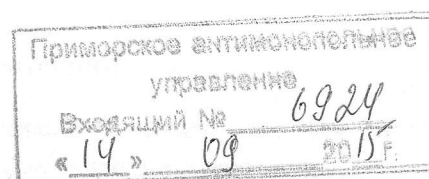 Приморское антимонопольное
управление
Входящий № 6924
« 14 » 09 2015 г.